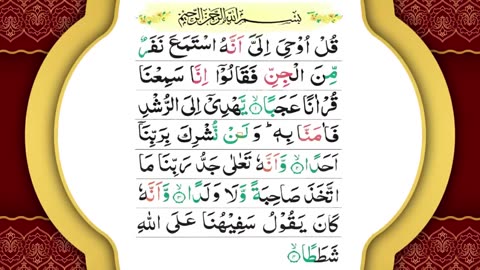 بِسْمِ اللّٰهِ الرَّحْمٰنِ الرَّحِيْمِ
قُلْ اُوْحِیَ اِلَیَّ اَنَّهُ اسْتَمَعَ نَفَرٌ
مِّنَ الْجِنِّ فَقَالُوْۤا اِنَّا سَمِعْنَا
قُرْاٰنًا عَجَبًا ۙ۱ یَّهْدِیْۤ اِلَی الرُّشْدِ
فَاٰمَنَّا بِهٖ ؕ وَلَنْ نُّشْرِكَ بِرَبِّنَاۤ
اَحَدًا ۙ۲ وَّاَنَّهٗ تَعٰلٰی جَدُّ رَبِّنَا مَا
اتَّخَذَ صَاحِبَةً وَّلَا وَلَدًا ۙ۳ وَّاَنَّهٗ
كَانَ یَقُوْلُ سَفِیْهُنَا عَلَی اللّٰهِ
شَطَطًا ۙ۴